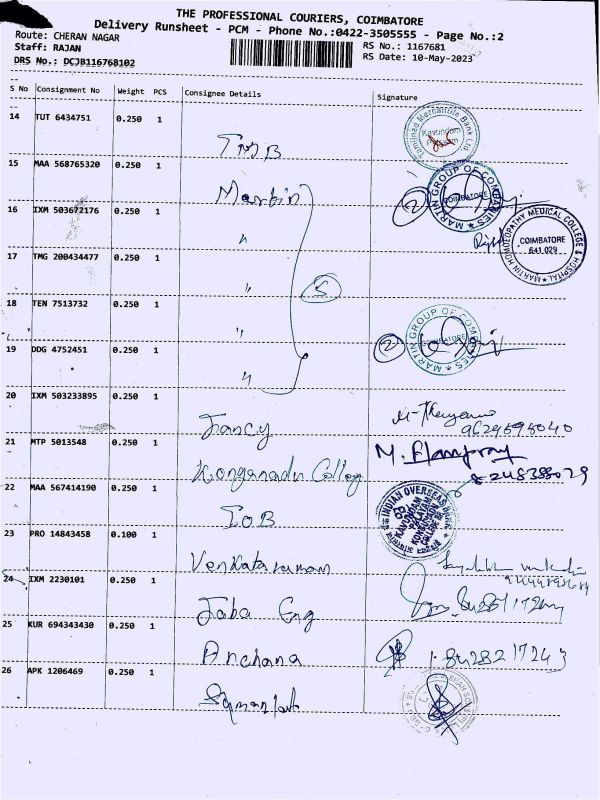 THE PROFESSIONAL COURIERS, COIMBATORE
Delivery Runsheet - PCM - Phone No.:0422-3505555 - Page No.:2
Route: CHERAN NAGAR
RS No.: 1167681
Staff: RAJAN
RS Date: 10-May-2023
DRS No.: DCJB116768102
S No Consignment No Weight PCS Consignee Details Signature
14 TUT 6434751 0.250 1
TMB
Tamilnad Mercantile Bank Ltd.
15 MAA 568765320 0.250 1
Martin
MARTIN GROUP OF COMPANIES
COIMBATORE
2
16 IXM 503672176 0.250 1
"
MARTIN HOMOEOPATHY MEDICAL COLLEGE & HOSPITAL
COIMBATORE
641 029
17 TMG 200434477 0.250 1
"
5
18 TEN 7513732 0.250 1
"
MARTIN GROUP OF COMPANIES
COIMBATORE
2
19 DDG 4752451 0.250 1
"
20 IXM 503233895 0.250 1
Fancy
21 MTP 5013548 0.250 1
Konganadu College
8248388029
22 MAA 567414190 0.250 1
IOB
INDIAN OVERSEAS BANK
23 PRO 14843458 0.100 1
Venkataraman
24 IXM 2230101 0.250 1
Jaba Eng
25 KUR 694343430 0.250 1
Archana
8428217243
26 APK 1206469 0.250 1